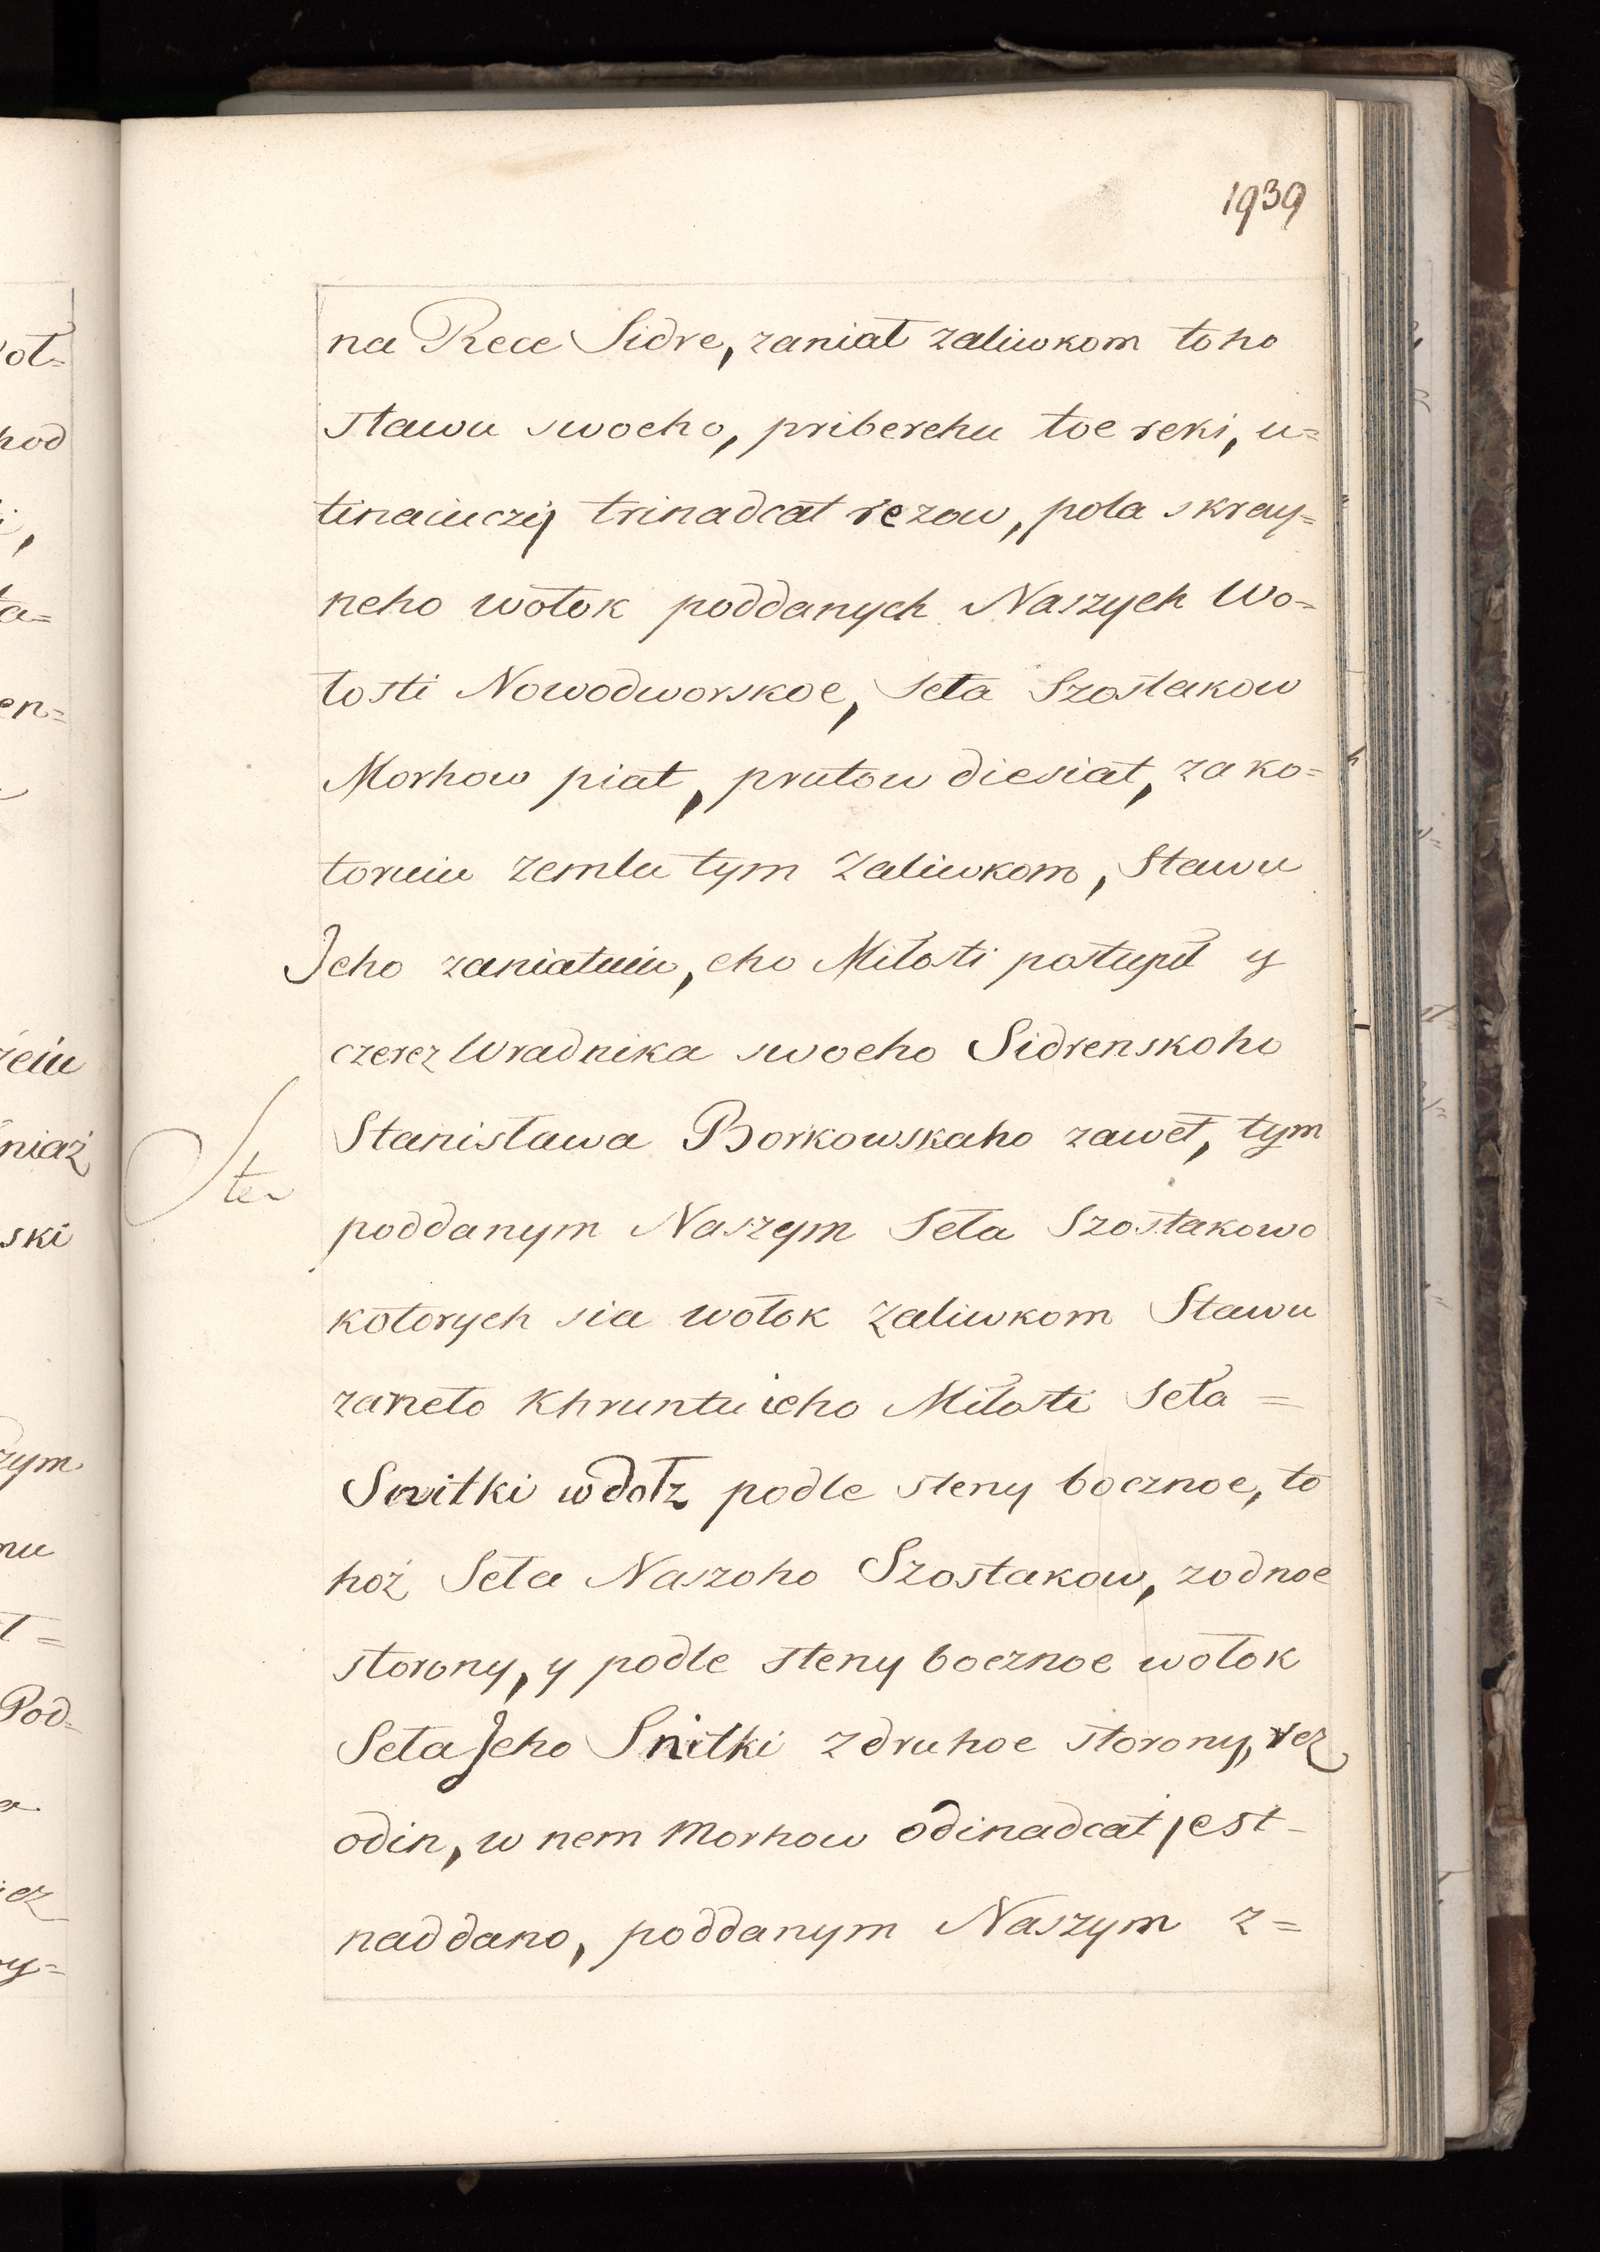 1939
na Rece Sidre, zaniał zaliwkom toho
stawu swoeho, priberehu toe reki, u=
tinaiuczy trinadcat rezow, pola skray=
neho wołok poddanych Naszych Wo=
łosti Nowodworskoe, Seła Szostakow
Morhow piat, prutow diesiat, za ko=
toruiu zemlu tym Zaliwkom, Stawu
Jeho zaniatuiu, eho Miłosti postupił y
czerez Wradnika swoeho Sidrenskoho
Stanisława Borkowskaho zaweł, tym
poddanym Naszym Seła Szostakowo
kotorych sia wołok Zaliwkom Stawu
zaneło Khruntu ieho Miłosti Seła =
Snitki wdołz podle steny bocznoe, to
hoż Seła Naszoho Szostakow, zodnoe
storony, y podle steny bocznoe wołok
Seła Jeho Snitki z druhoe storony, rez
odin, w nem Morhow odinadcat jest -
naddano, poddanym Naszym z=